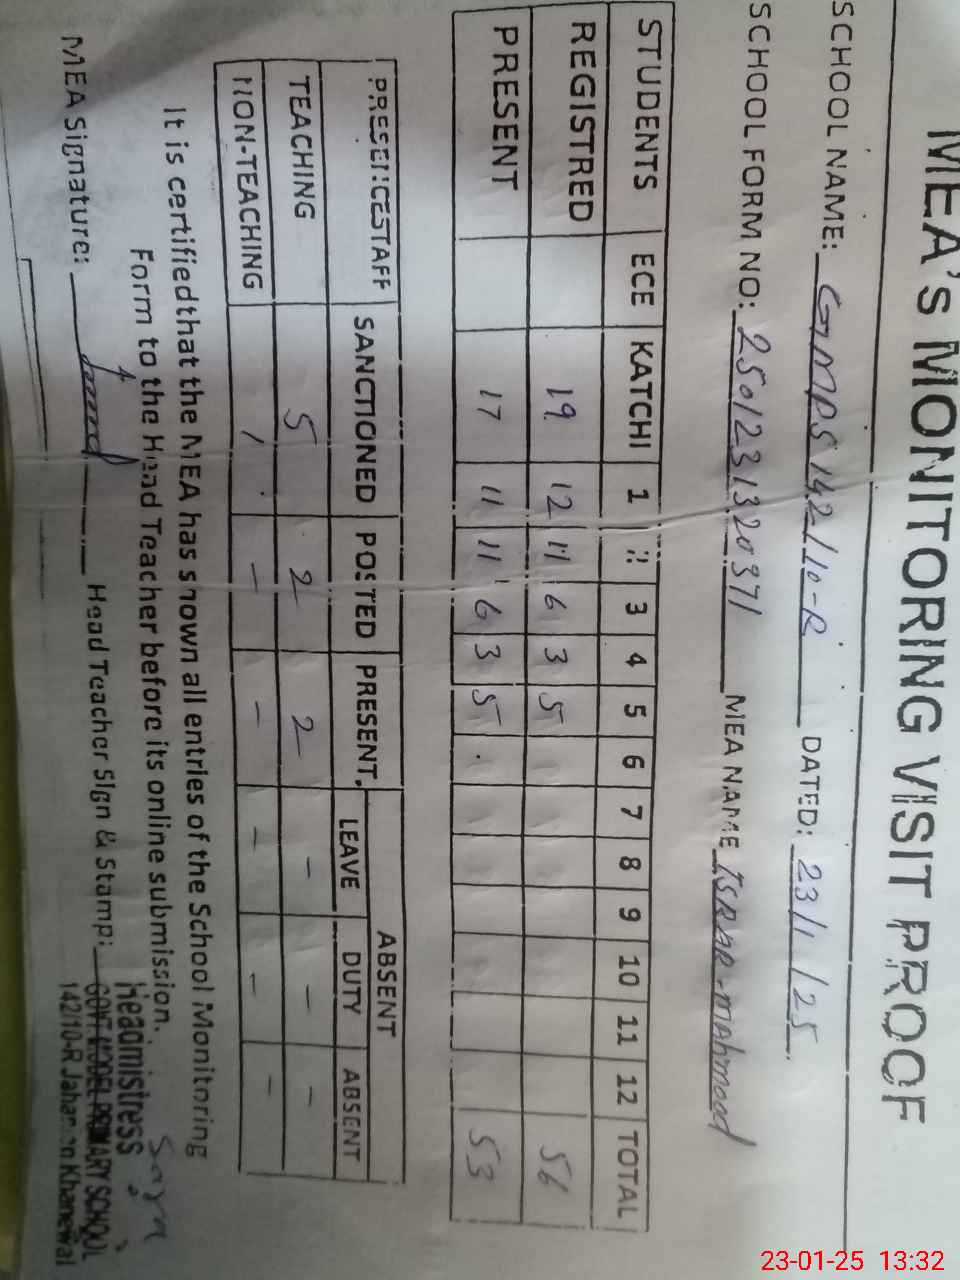 MEA's MONITORING VISIT PROOF
SCHOOL NAME: GMPS 142/10-R DATED: 23/1/25
SCHOOL FORM NO: 2501231320371 MEA NAME ISRAR-mahmood
STUDENTS ECE KATCHI 1 2 3 4 5 6 7 8 9 10 11 12 TOTAL
REGISTRED 19 12 11 6 3 5 56
PRESENT 17 11 11 6 3 5 . 53
PRESENCESTAFF SANCTIONED POSTED PRESENT. ABSENT
LEAVE DUTY ABSENT
TEACHING 5 2 2 - - -
NON-TEACHING - - - - -
It is certifiedthat the MEA has shown all entries of the School Monitoring
Form to the Head Teacher before its online submission.
MEA Signature: Head Teacher Sign & Stamp:
Headmistress
GOVT. MODEL PRIMARY SCHOOL
142/10-R Jahanian Khanewal
23-01-25 13:32